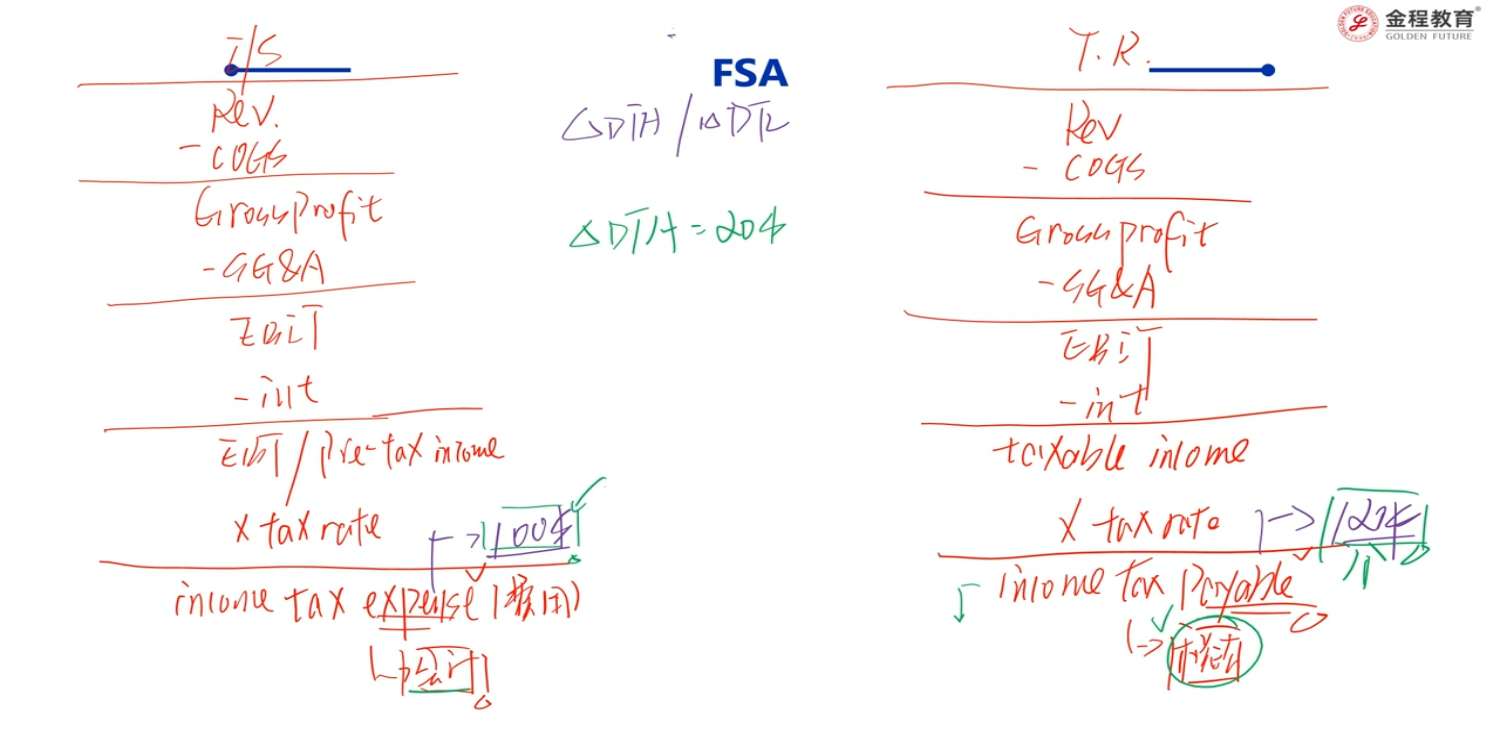 金程教育
GOLDEN FUTURE
FSA
I/S
Rev.
- COGS
Gross profit
- SG&A
EBIT
- int
EBT / Pre-tax income
x tax rate → 100$
income tax expense (费用)
↳ 会计
△DTA / △DTL
△DTA = 20$
T.R.
Rev
- COGS
Gross profit
- SG&A
EBIT
- int
taxable income
x tax rate → 120$
income tax payable
↳ 税法